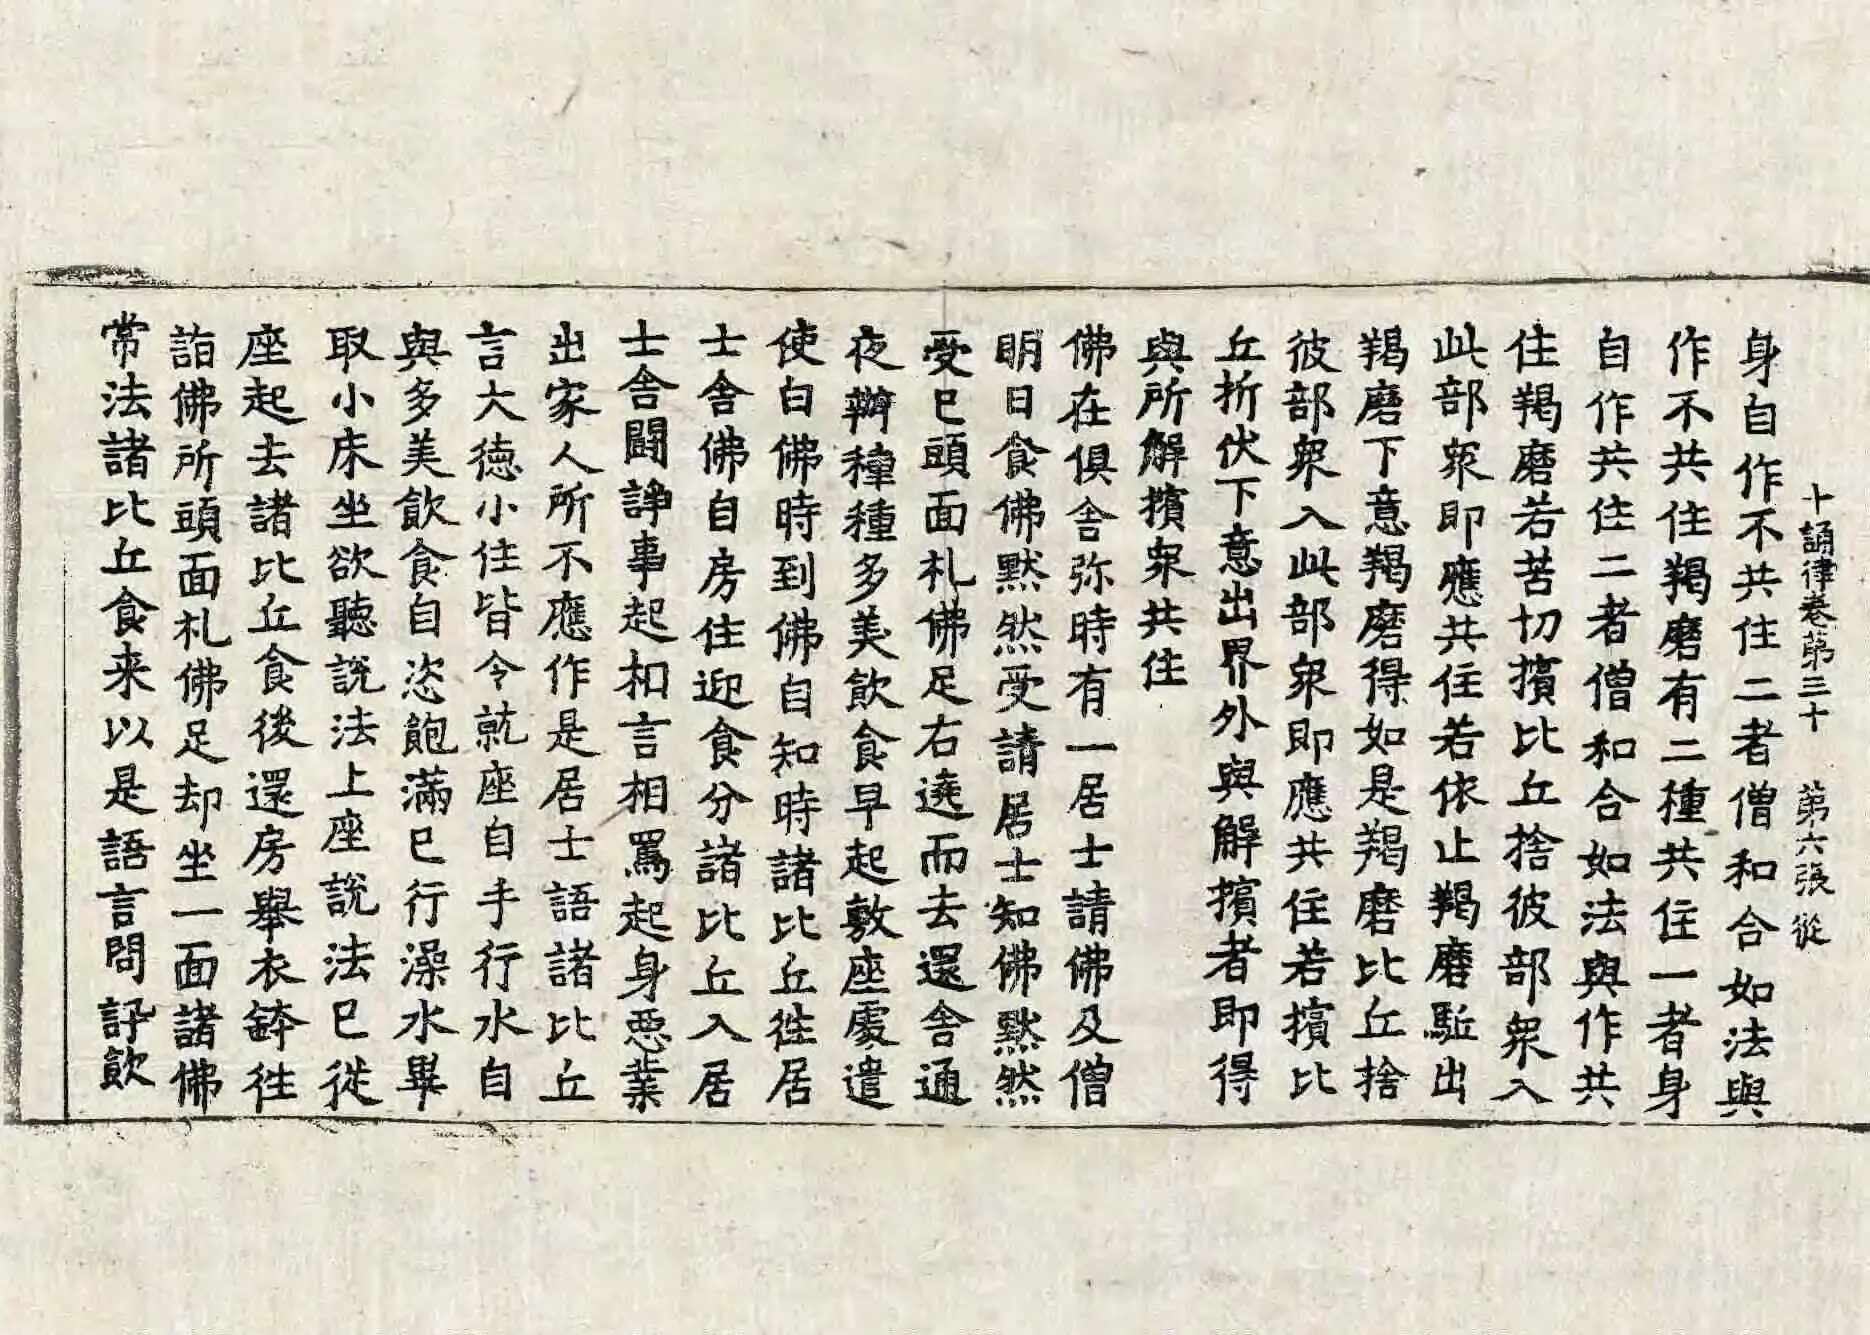 十誦律卷苐三十　苐六張　從
身自作不共住二者僧和合如法與
作不共住羯磨有二種共住一者身
自作共住二者僧和合如法與作共
住羯磨若苦切擯比丘捨彼部衆入
此部衆即應共住若依止羯磨駈出
羯磨下意羯磨得如是羯磨比丘捨
彼部衆入此部衆即應共住若擯比
丘折伏下意出界外與解擯者即得
與所解擯衆共住
佛在俱舍弥時有一居士請佛及僧
明日食佛黙然受請居士知佛黙然
受已頭面礼佛足右遶而去還舍通
夜辦種種多美飲食早起敷座處遣
使白佛時到佛自知時諸比丘徃居
士舍佛自房住迎食分諸比丘入居
士舍鬪諍事起相言相罵起身惡業
出家人所不應作是居士語諸比丘
言大德小住皆令就座自手行水自
與多美飲食自恣飽滿已行澡水畢
取小床坐欲聽說法上座說法已從
座起去諸比丘食後還房舉衣鉢徃
詣佛所頭面礼佛足却坐一面諸佛
常法諸比丘食来以是語言問訊飲